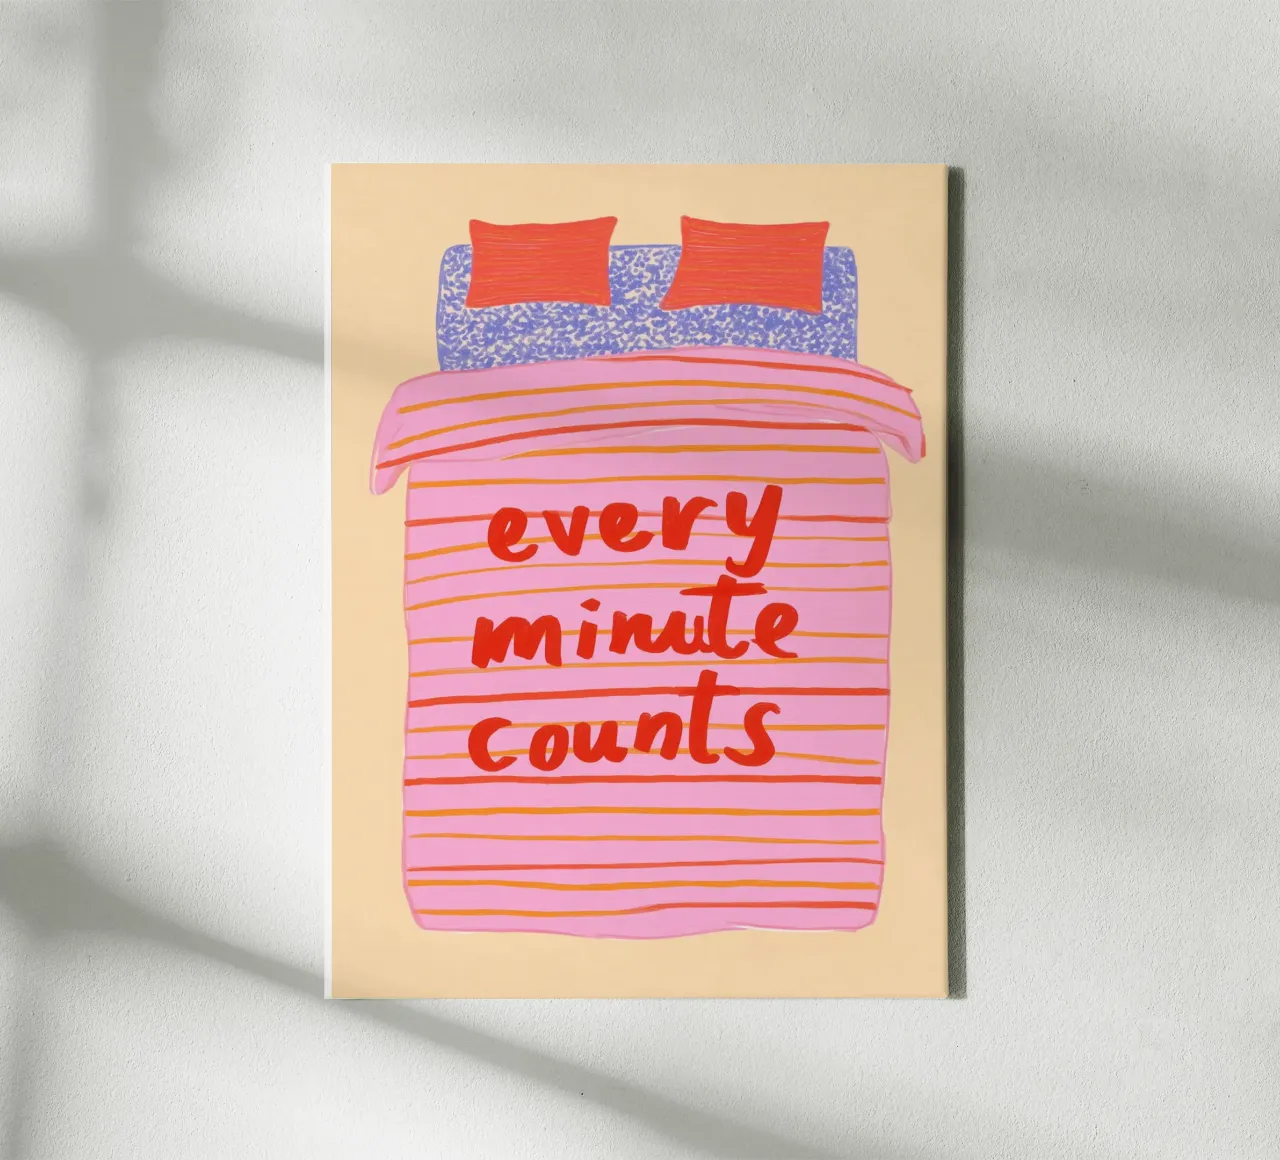 every
minute
counts